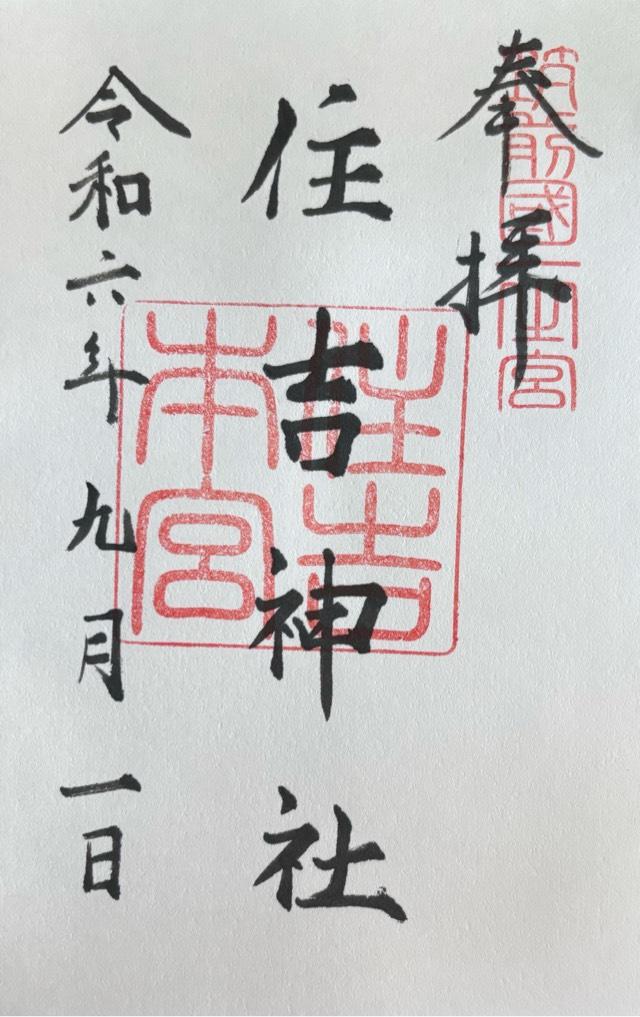 奉拝
筑前國一之宮
住吉神社
住吉本宮
令和六年九月一日